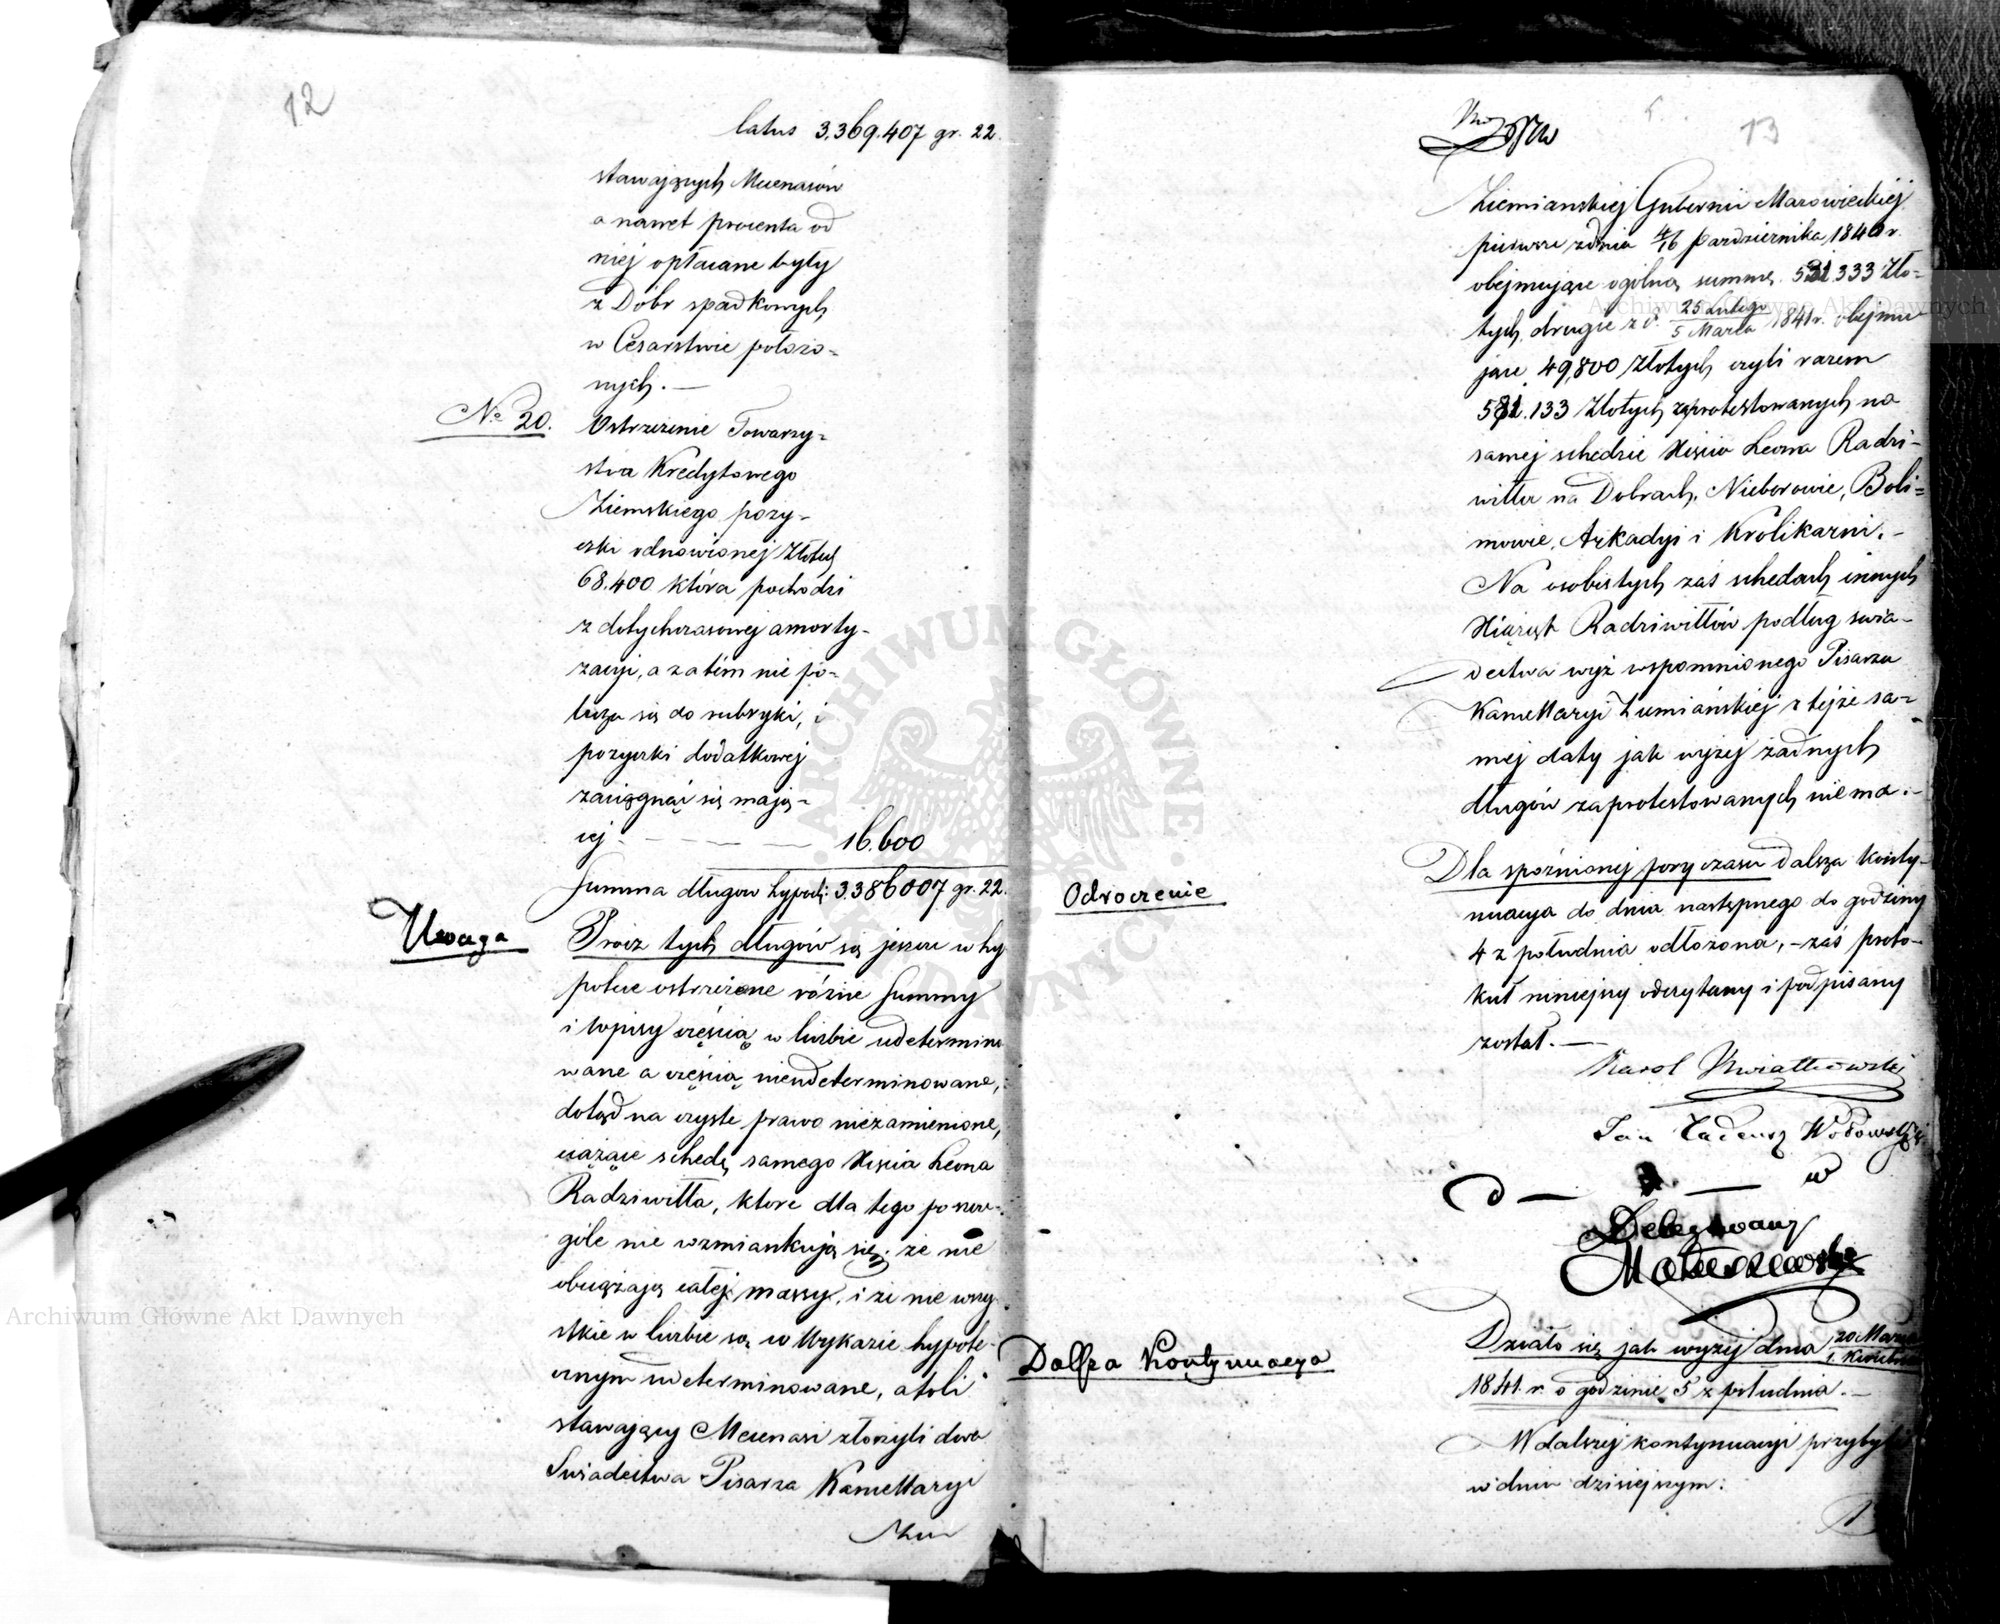 12
latus 3.369.407 gr. 22.
stawających Mecenasów
a nawet procenta od
niej opłacane były
z Dóbr spadkowych
w Cesarstwie położo=
nych. —
No 20.
Ostrzeżenie Towarzy=
stwa Kredytowego
Ziemskiego pozy=
czki odnowionej Złotych
68.400 która pochodzi
z dotychczasowej amorty-
zacyi, a zatém nie po=
licza się do rubryki, i
pozyczki dodatkowej
zaciągnąć się mają=
cej - — — — 16.600
Summa długow hypoth: 3.386007 gr. 22.
Uwaga
Prócz tych długów są jeszcze w hy
potece ostrzeżone różne Summy
i wpisy częścią w liczbie udetermino
wane a częścią nieudeterminowane,
dotąd na czyste prawo niezamienione,
ciążące schedę samego Xięcia Leona
Radziwiłła, ktore dla tego poszcze=
góle nie wzmiankują się, że nie
obciążają całej massy, i że nie wszy
stkie w liczbie są w Wykazie hypote-
cznym udeterminowane, atoli
stawający Mecenasi złożyli dwa
Swiadectwa Pisarza Kancellaryi
Ziem
13
Ziemianskiej Gubernii Mazowieckiej
pierwsze z dnia 4/16 Pazdziernika 1840 r.
obejmujące ogólną summę 531.333 Zło=
tych, drugie z d. 25 Lutego / 5 Marca 1841 r. obejmu
jące 49,800 Złotych czyli razem
581.133 Złotych zaprotestowanych na
samej schedzie Xięcia Leona Radzi-
wiłła na Dobrach, Nieborowie, Boli=
mowie, Arkadyi i Królikarni. —
Na osobistych zaś schedach innych
Xiążąt Radziwiłłów podług swia=
dectwa wyż wspomnionego Pisarza
Kancellaryi Ziemiańskiej z tejże sa=
mej daty jak wyżej żadnych
długów zaprotestowanych nie ma. —
Odroczenie
Dla spóźnionej pory czasu dalsza konty-
nuacya do dnia następnego do godziny
4 z południa odłożona, — zaś proto-
kuł niniejszy odczytany i podpisany
został. —
Karol Kwiatkowski
Jan Tadeusz Wołowski
w
Delegowany
Dalsza Kontynuacya
Działo się jak wyżej dnia 20 Marca / 1 Kwietnia
1841 r. o godzinie 5 z południa. —
W dalszej kontynuacyi przybyli
w dniu dzisiejszym:
ARCHIWUM GŁÓWNE AKT DAWNYCH
Archiwum Główne Akt Dawnych
Archiwum Główne Akt Dawnych